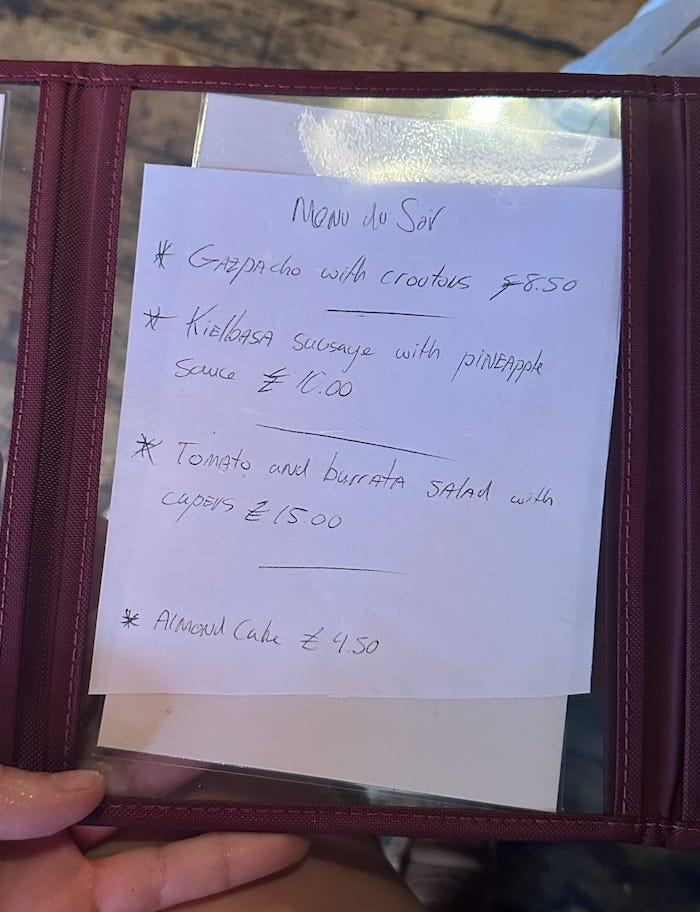 Menu du Soir
* Gazpacho with croutons £8.50
* Kielbasa sausage with pineapple
sauce £10.00
* Tomato and burrata salad with
capers £15.00
* Almond Cake £4.50